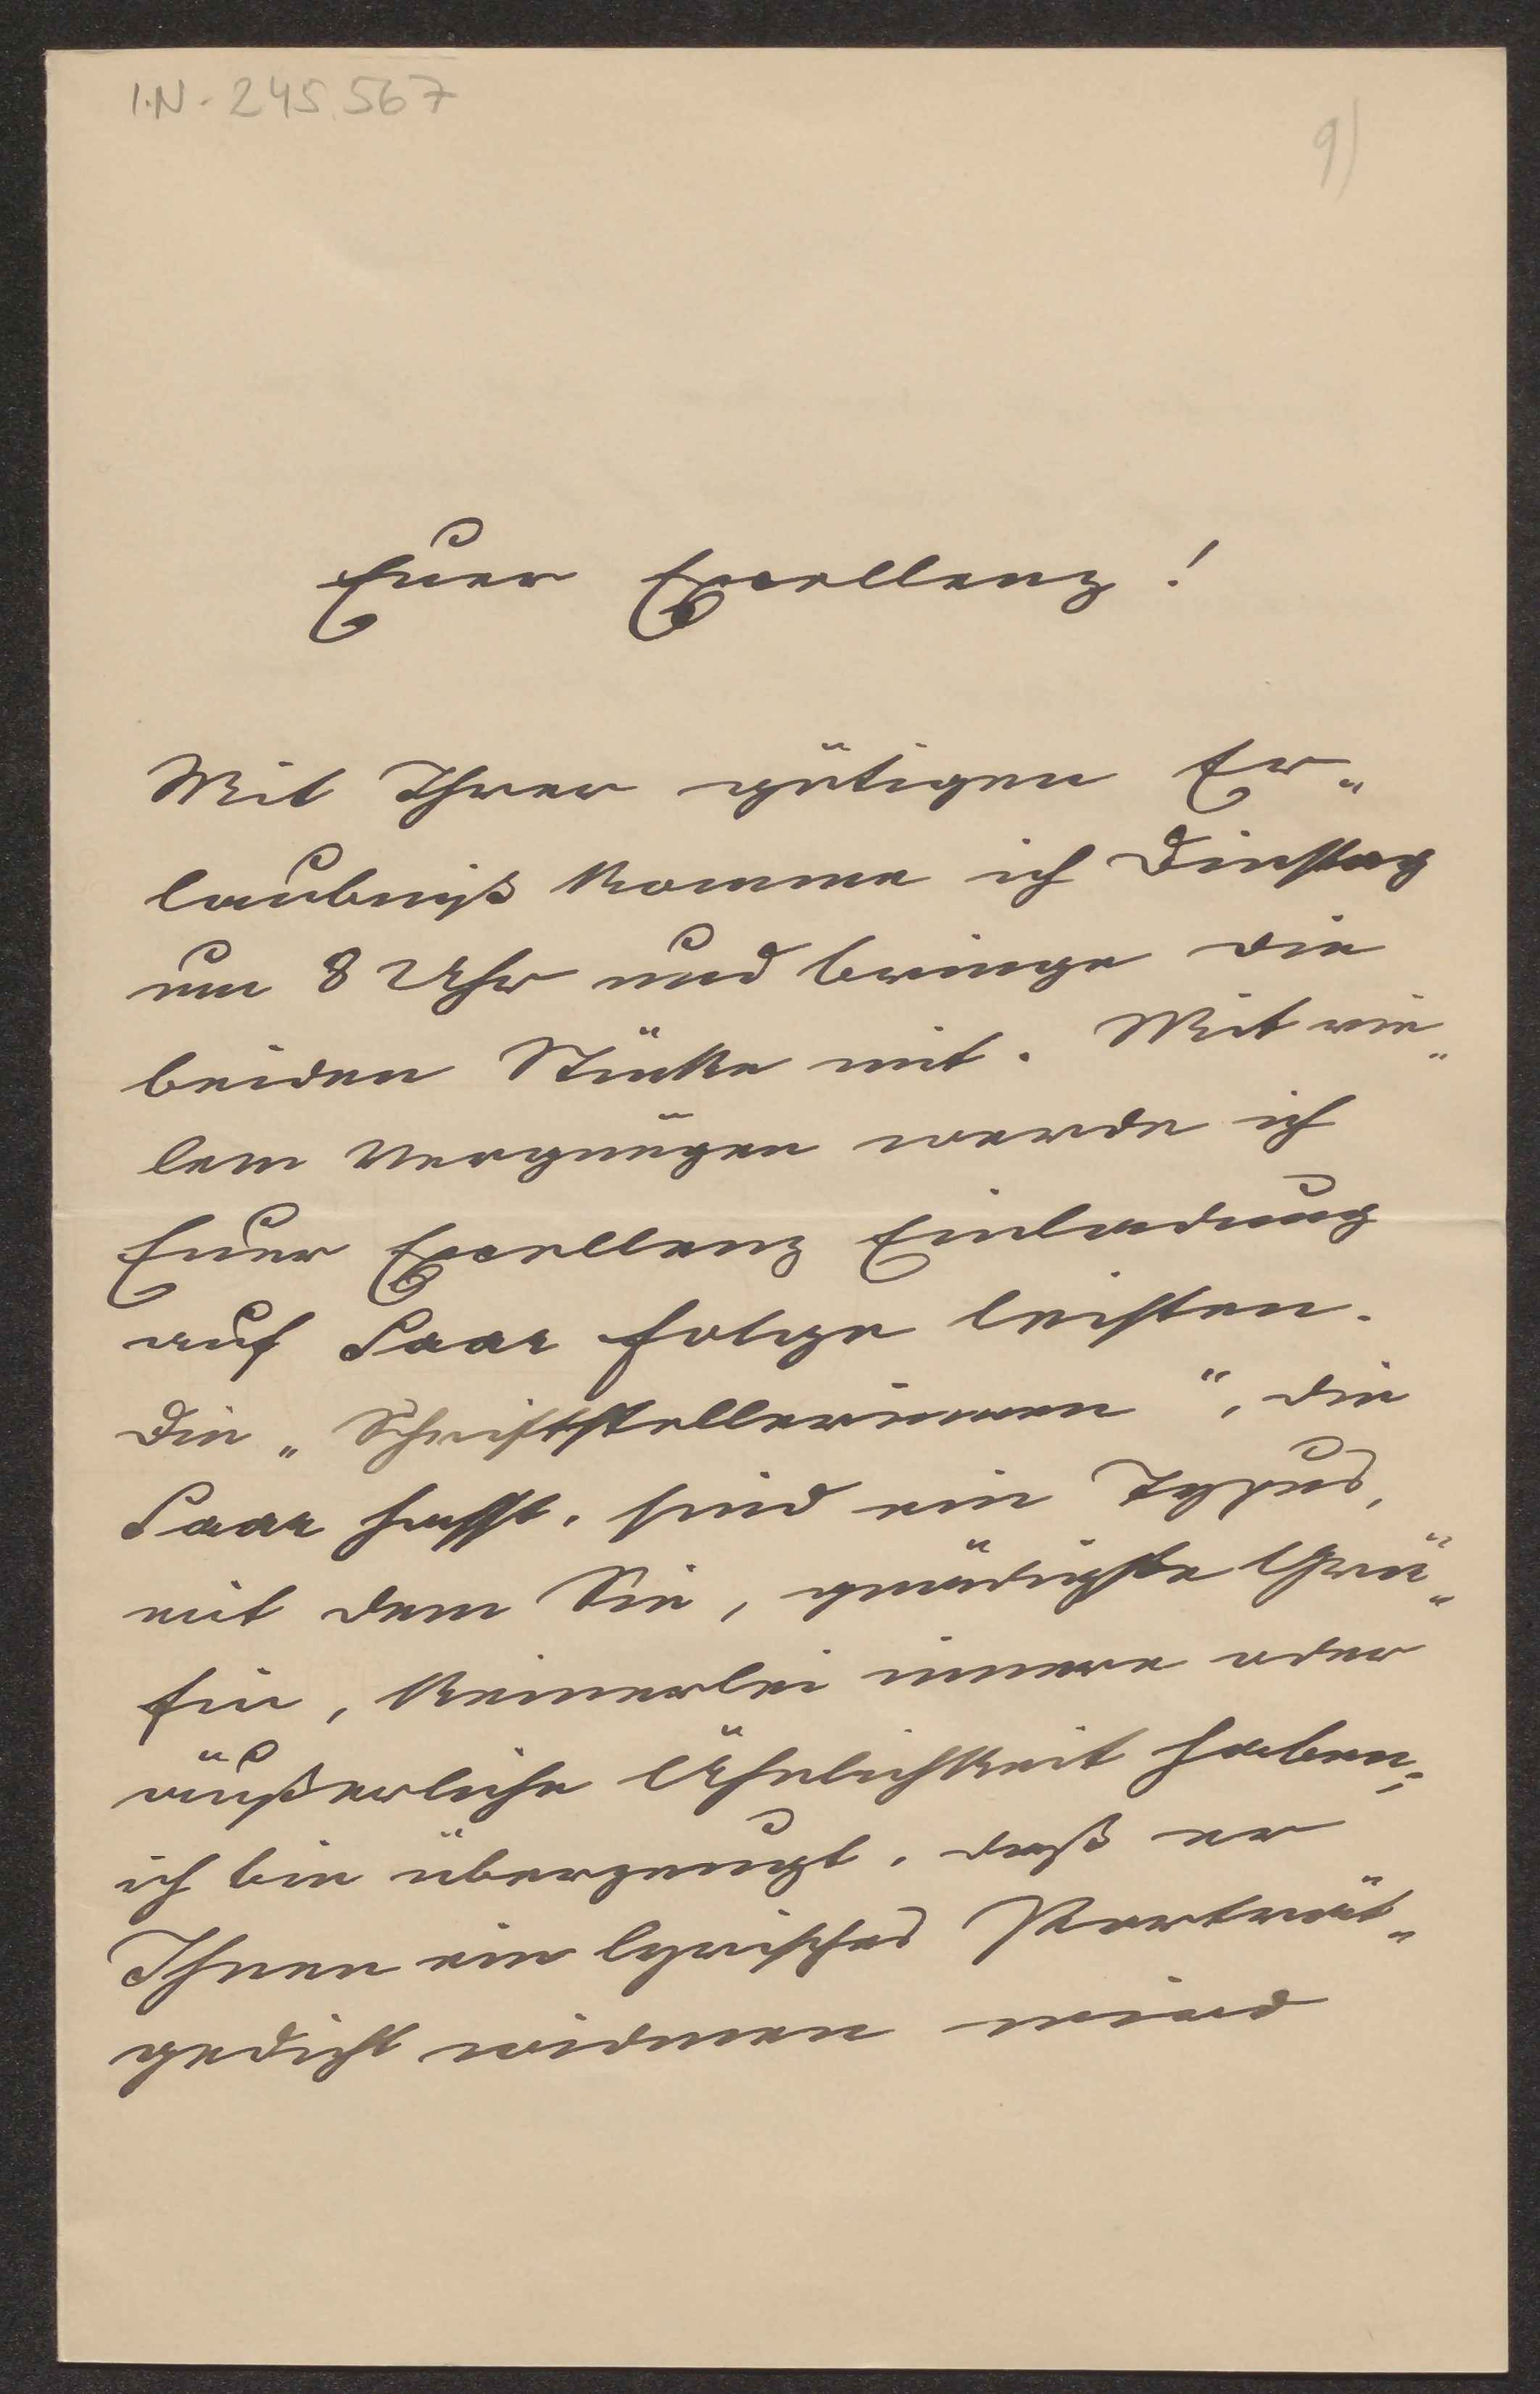 I.N. 245.567
9)
Euer Excellenz!
Mit Ihrer gütigen Er„
laubniß komme ich Dinstag
um 8 Uhr und bringe die
beiden Stücke mit. Mit vie„
lem Vergnügen werde ich
Euer Excellenz Einladung
auf Saar Folge leisten.
Die „Schriftstellerinnen“, die
Saar hasst, sind ein Typus,
mit dem Sie, gnädigste Grä„
fin, keinerlei innere oder
äußerliche Ähnlichkeit haben;
ich bin überzeugt, daß er
Ihnen ein lyrisches Porträt„
gedicht widmen wird